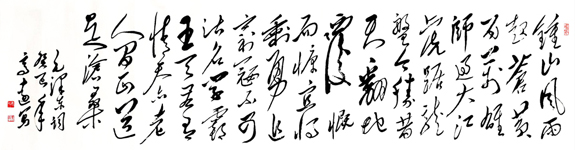 鍾山風雨
起蒼黄
百萬雄
師過大江
虎踞龍
盤今勝昔
天翻地
覆慨
而慷宜將
剩勇追
窮寇不可
沽名學霸
王天若有
情天亦老
人間正道
是滄桑
毛澤東詞